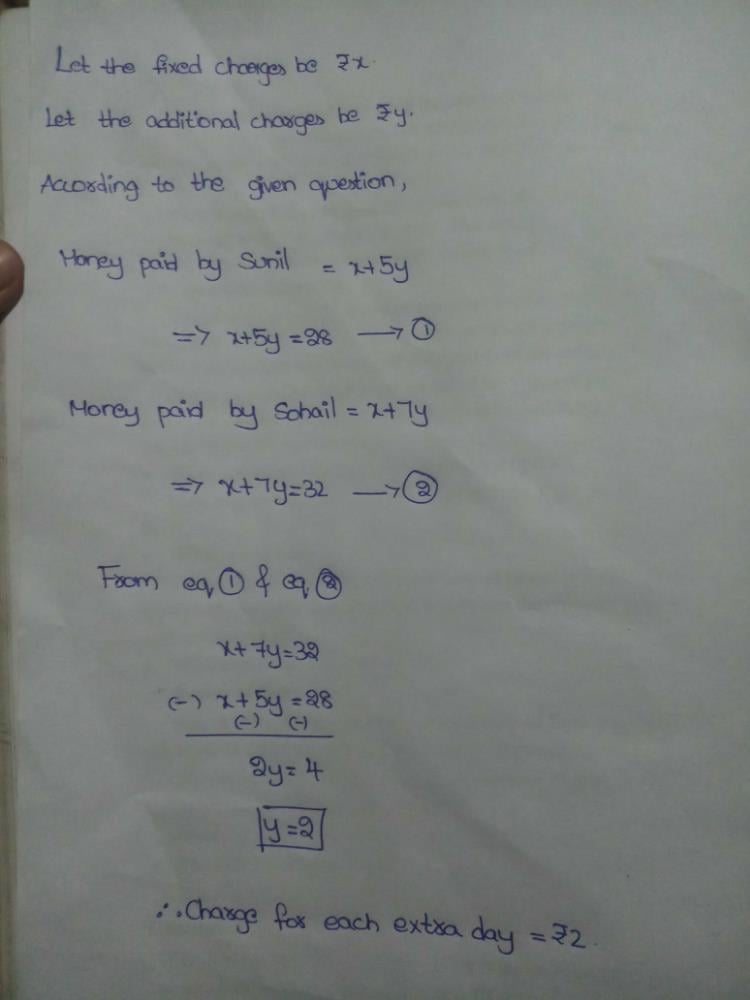 Let the fixed charges be ₹x.
Let the additional charges be ₹y.
According to the given question,
Money paid by Sunil = x+5y
=> x+5y=28 —> ①
Money paid by Sohail = x+7y
=> x+7y=32 —> ②
From eq ① & eq ②
x+7y=32
(-) x+5y=28
(-) (-)
2y=4
y=2
∴ Charge for each extra day = ₹2.